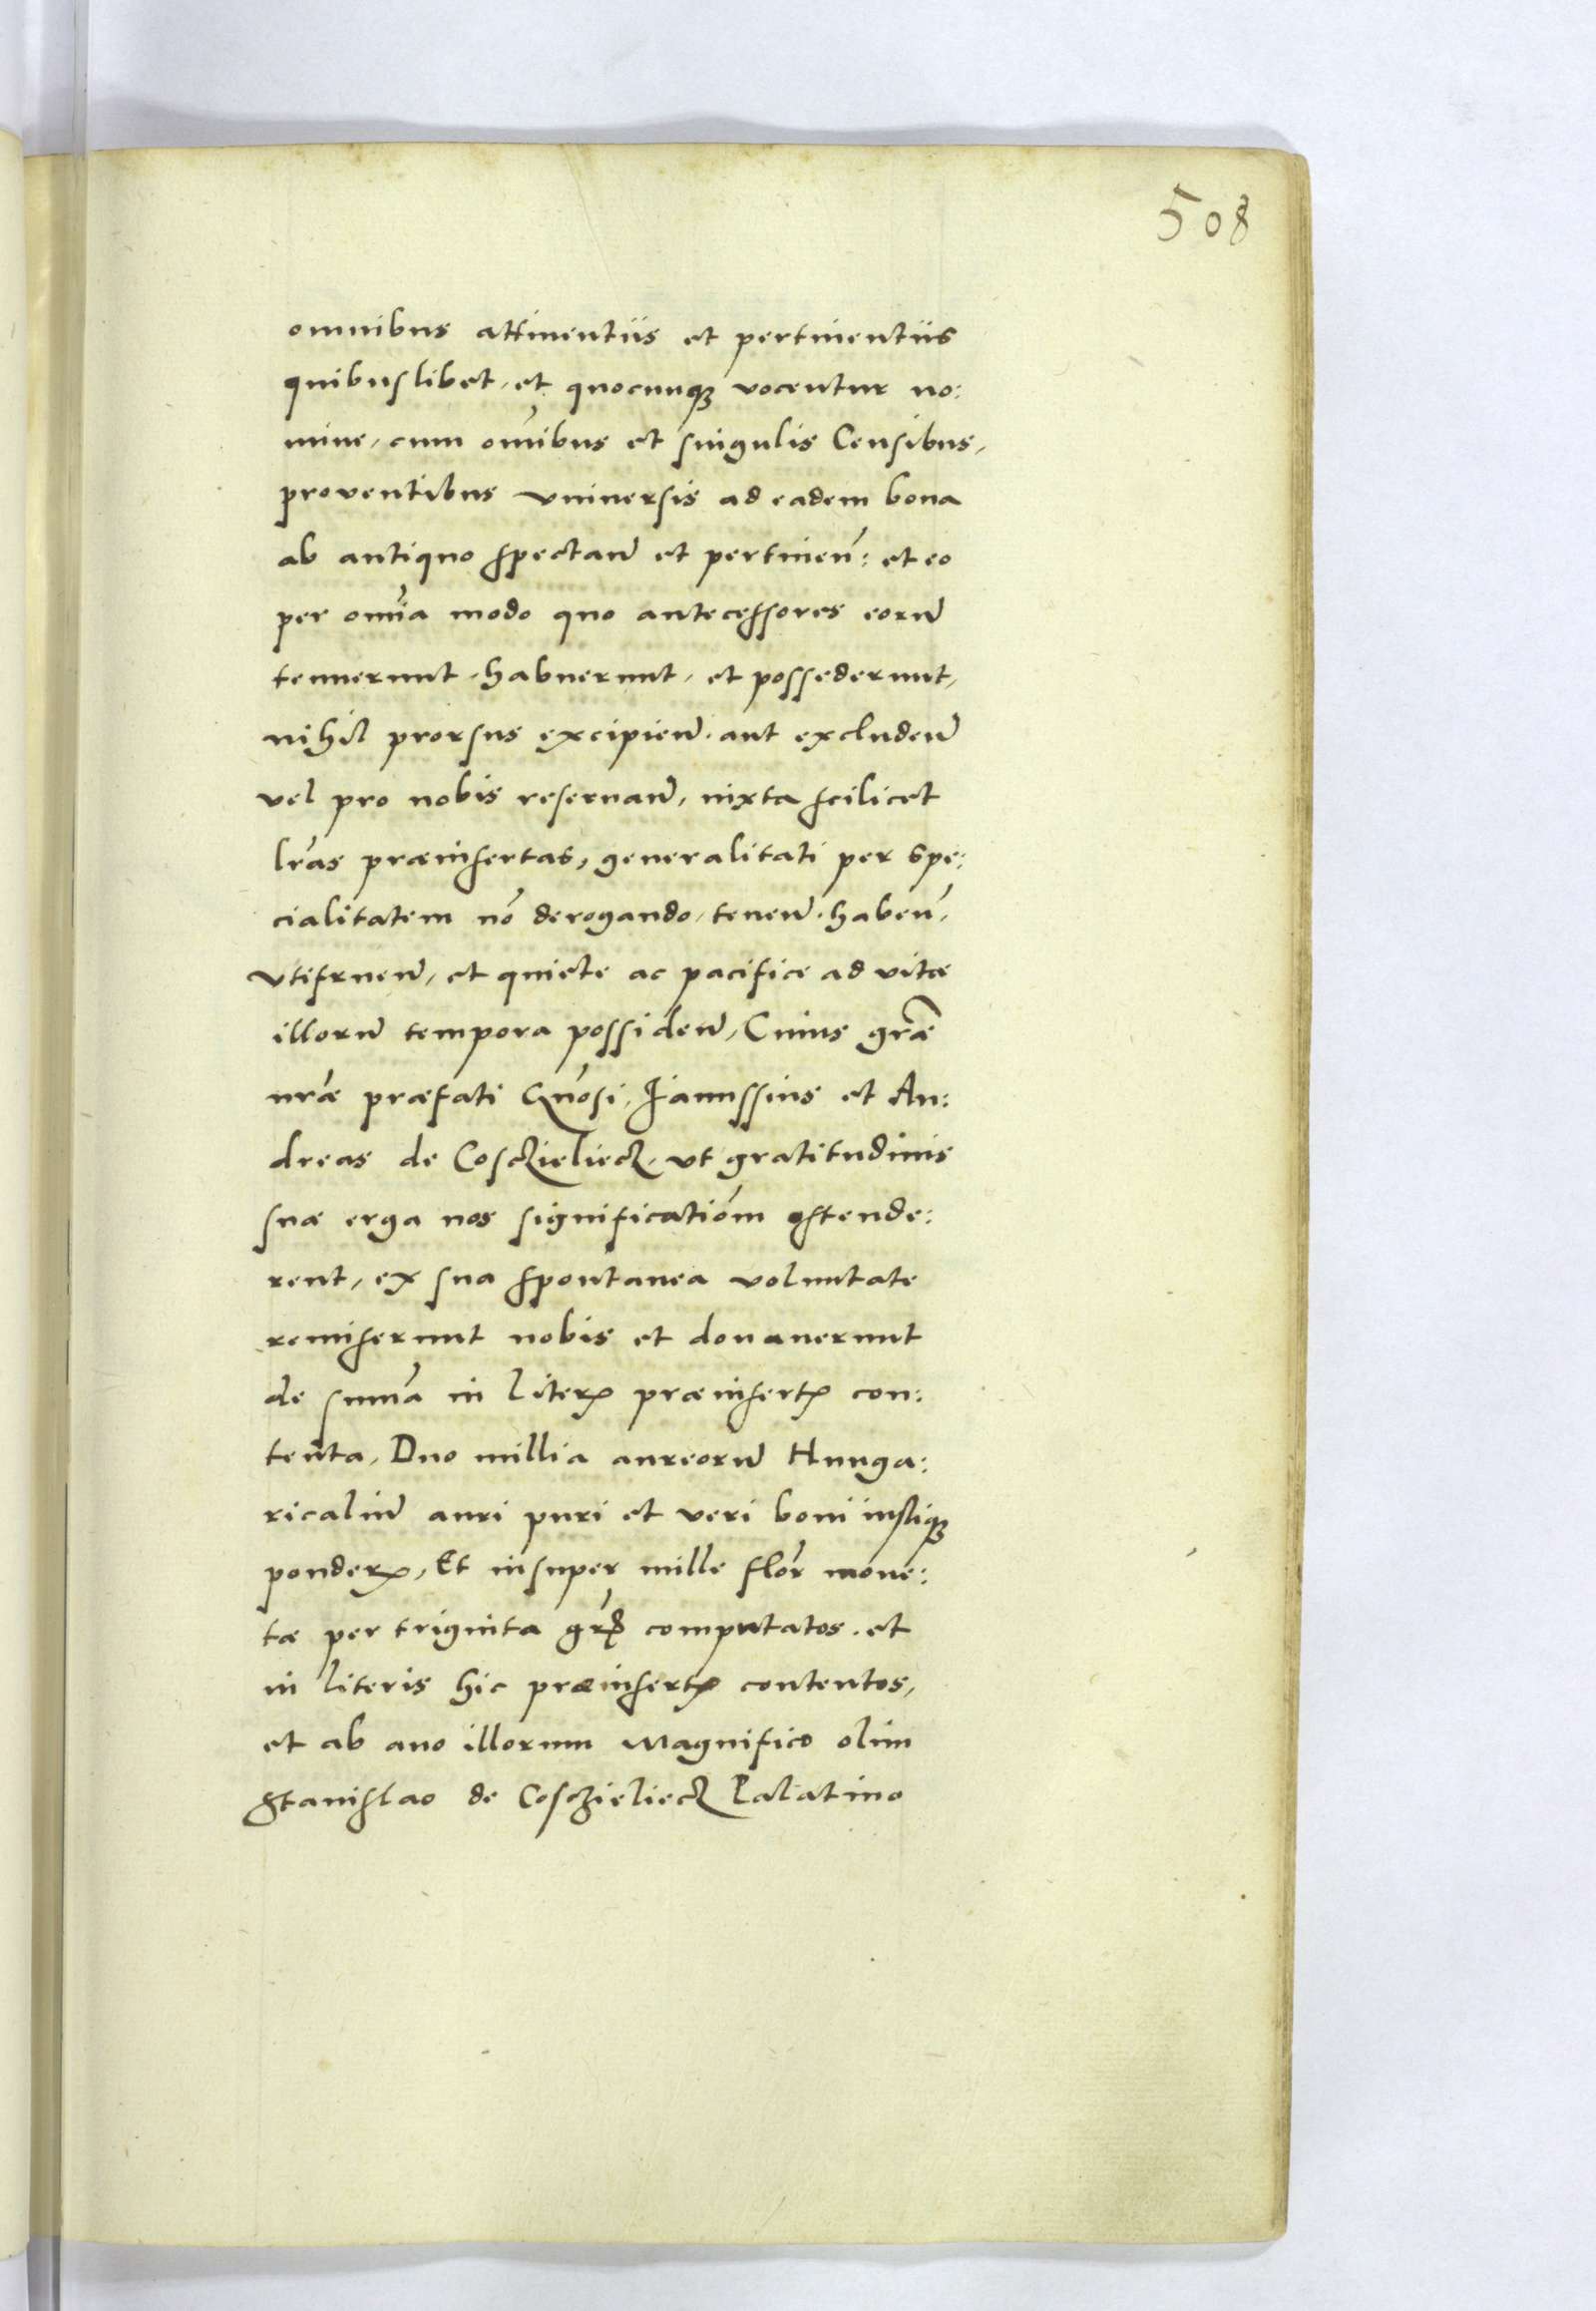 508
omnibus attinentiis et pertinentiis
quibuslibet, et quocunq vocentur no:
mine, cum om̄ibus et singulis Censibus,
proventibus universis ad eadem bona
ab antiquo spectan̄ et pertinen̄: et eo
per om̄ia modo quo antecessores eorū
tenuerunt, habuerunt, et possederunt,
nihil prorsus excipien̄. aut excluden̄
vel pro nobis reservan̄, iuxta scilicet
lr̄as præinsertas, generalitati per spe:
cialitatem nō derogando, tenen̄. haben̄,
utifruen̄, et quiete ac pacifice ad vitæ
illorū tempora possiden̄, Cuius gr̄æ
nr̄æ præfati Gn̄osi, Janussius et An:
dreas de Cosczieliecz, ut gratitudinis
suæ erga nos significatiōm ostende:
rent, ex sua spontanea voluntate
remiserunt nobis et donaverunt
de sum̄a in literꝭ præinsertꝭ con:
tenta, Duo millia aureorū Hunga:
ricaliū auri puri et veri boni iustiq
ponderꝭ, Et insuper mille flor̄ mone:
tæ per triginta gr̄ꝭ computatos. et
in literis hic præinsertꝭ contentos,
et ab avo illorum Magnifico olim
Stanislao de Cosczieliecz Palatino